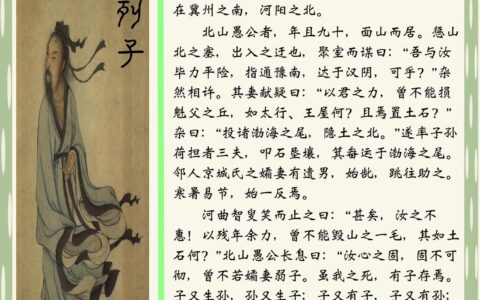 列子
在冀州之南，河阳之北。
北山愚公者，年且九十，面山而居。惩山
北之塞，出入之迂也，聚室而谋曰：“吾与汝
毕力平险，指通豫南，达于汉阴，可乎？”杂
然相许。其妻献疑曰：“以君之力，曾不能损
魁父之丘，如太行、王屋何？且焉置土石？”
杂曰：“投诸渤海之尾，隐土之北。”遂率子孙
荷担者三夫，叩石垦壤，箕畚运于渤海之尾。
邻人京城氏之孀妻有遗男，始龀，跳往助之。
寒暑易节，始一反焉。
河曲智叟笑而止之曰：“甚矣，汝之不
惠！以残年余力，曾不能毁山之一毛，其如土
石何？”北山愚公长息曰：“汝心之固，固不可
彻，曾不若孀妻弱子。虽我之死，有子存焉。
子又生孙，孙又生子；子又有子，子又有孙；